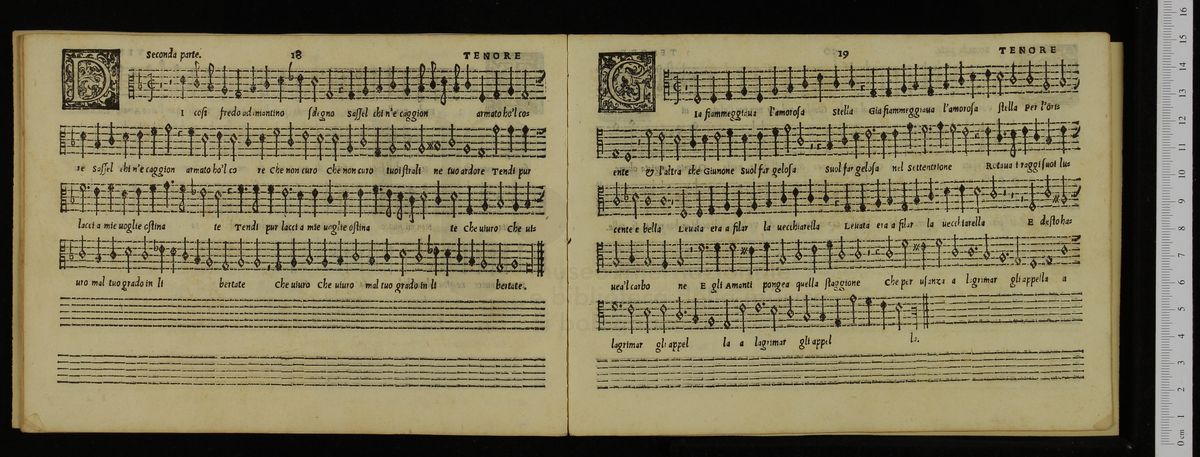 Seconda parte. 18 TENORE
DI cosi fredo adimantino sdegno Sassel chi n'e caggion armato ho'l cos
re Sassel chi n'e caggion armato ho'l co re Che non curo Che non curo tuoi strali ne tuo ardore Tendi pur
lacci a mie voglie ostina te Tendi pur lacci a mie voglie ostina te Che viuro Che uis
uro mal tuo grado in li bertate Che uiuro Che uiuro mal tuo grado in li bertate.
19 TENORE
GIa fiammeggiaua l'amorosa stella Gia fiammeggiaua l'amorosa stella Per l'oris
ente & l'altra che Giunone Suol far gelosa Suol far gelosa nel Settentrione Rotaua i raggi suoi lus
cente e bella Leuata era a filar la uecchiarella Leuata era a filar la uecchiarella E desto has
uea'l carbo ne E gli Amanti pongea quella staggione Che per usanza a lagrimar gli appella a
lagrimar gli appel la a lagrimar gli appel la.
0 cm 1 2 3 4 5 6 7 8 9 10 11 12 13 14 15 16